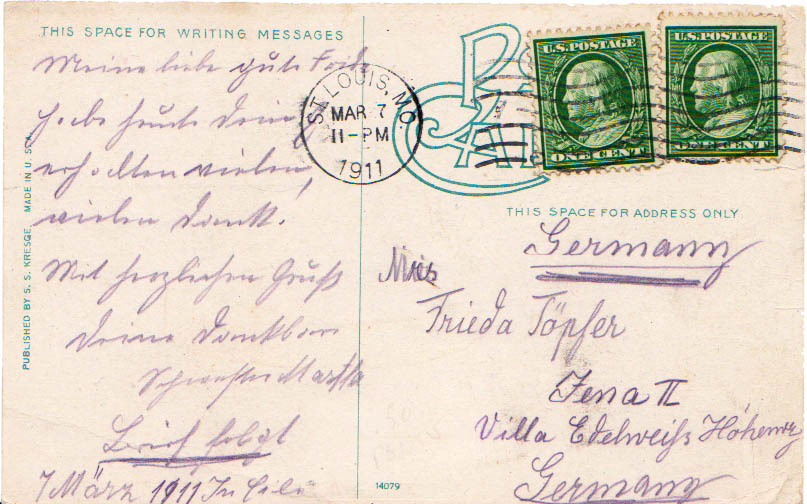 THIS SPACE FOR WRITING MESSAGES
Meine liebe gute Frida
Habe heute Deine
erhalten vielen,
vielen Dank.
Mit herzlichem Gruß
Deine dankbare
Schwester Martha
Brief folgt
7 März 1911 In Eile
PUBLISHED BY S. S. KRESGE. MADE IN U. S. A.
ST. LOUIS, MO.
MAR 7
11-PM
1911
U.S. POSTAGE
ONE CENT
U.S. POSTAGE
ONE CENT
THIS SPACE FOR ADDRESS ONLY
Germany
Mies
Frieda Töpfer
Jena II
Villa Edelweiß Höhenweg
Germany
14079